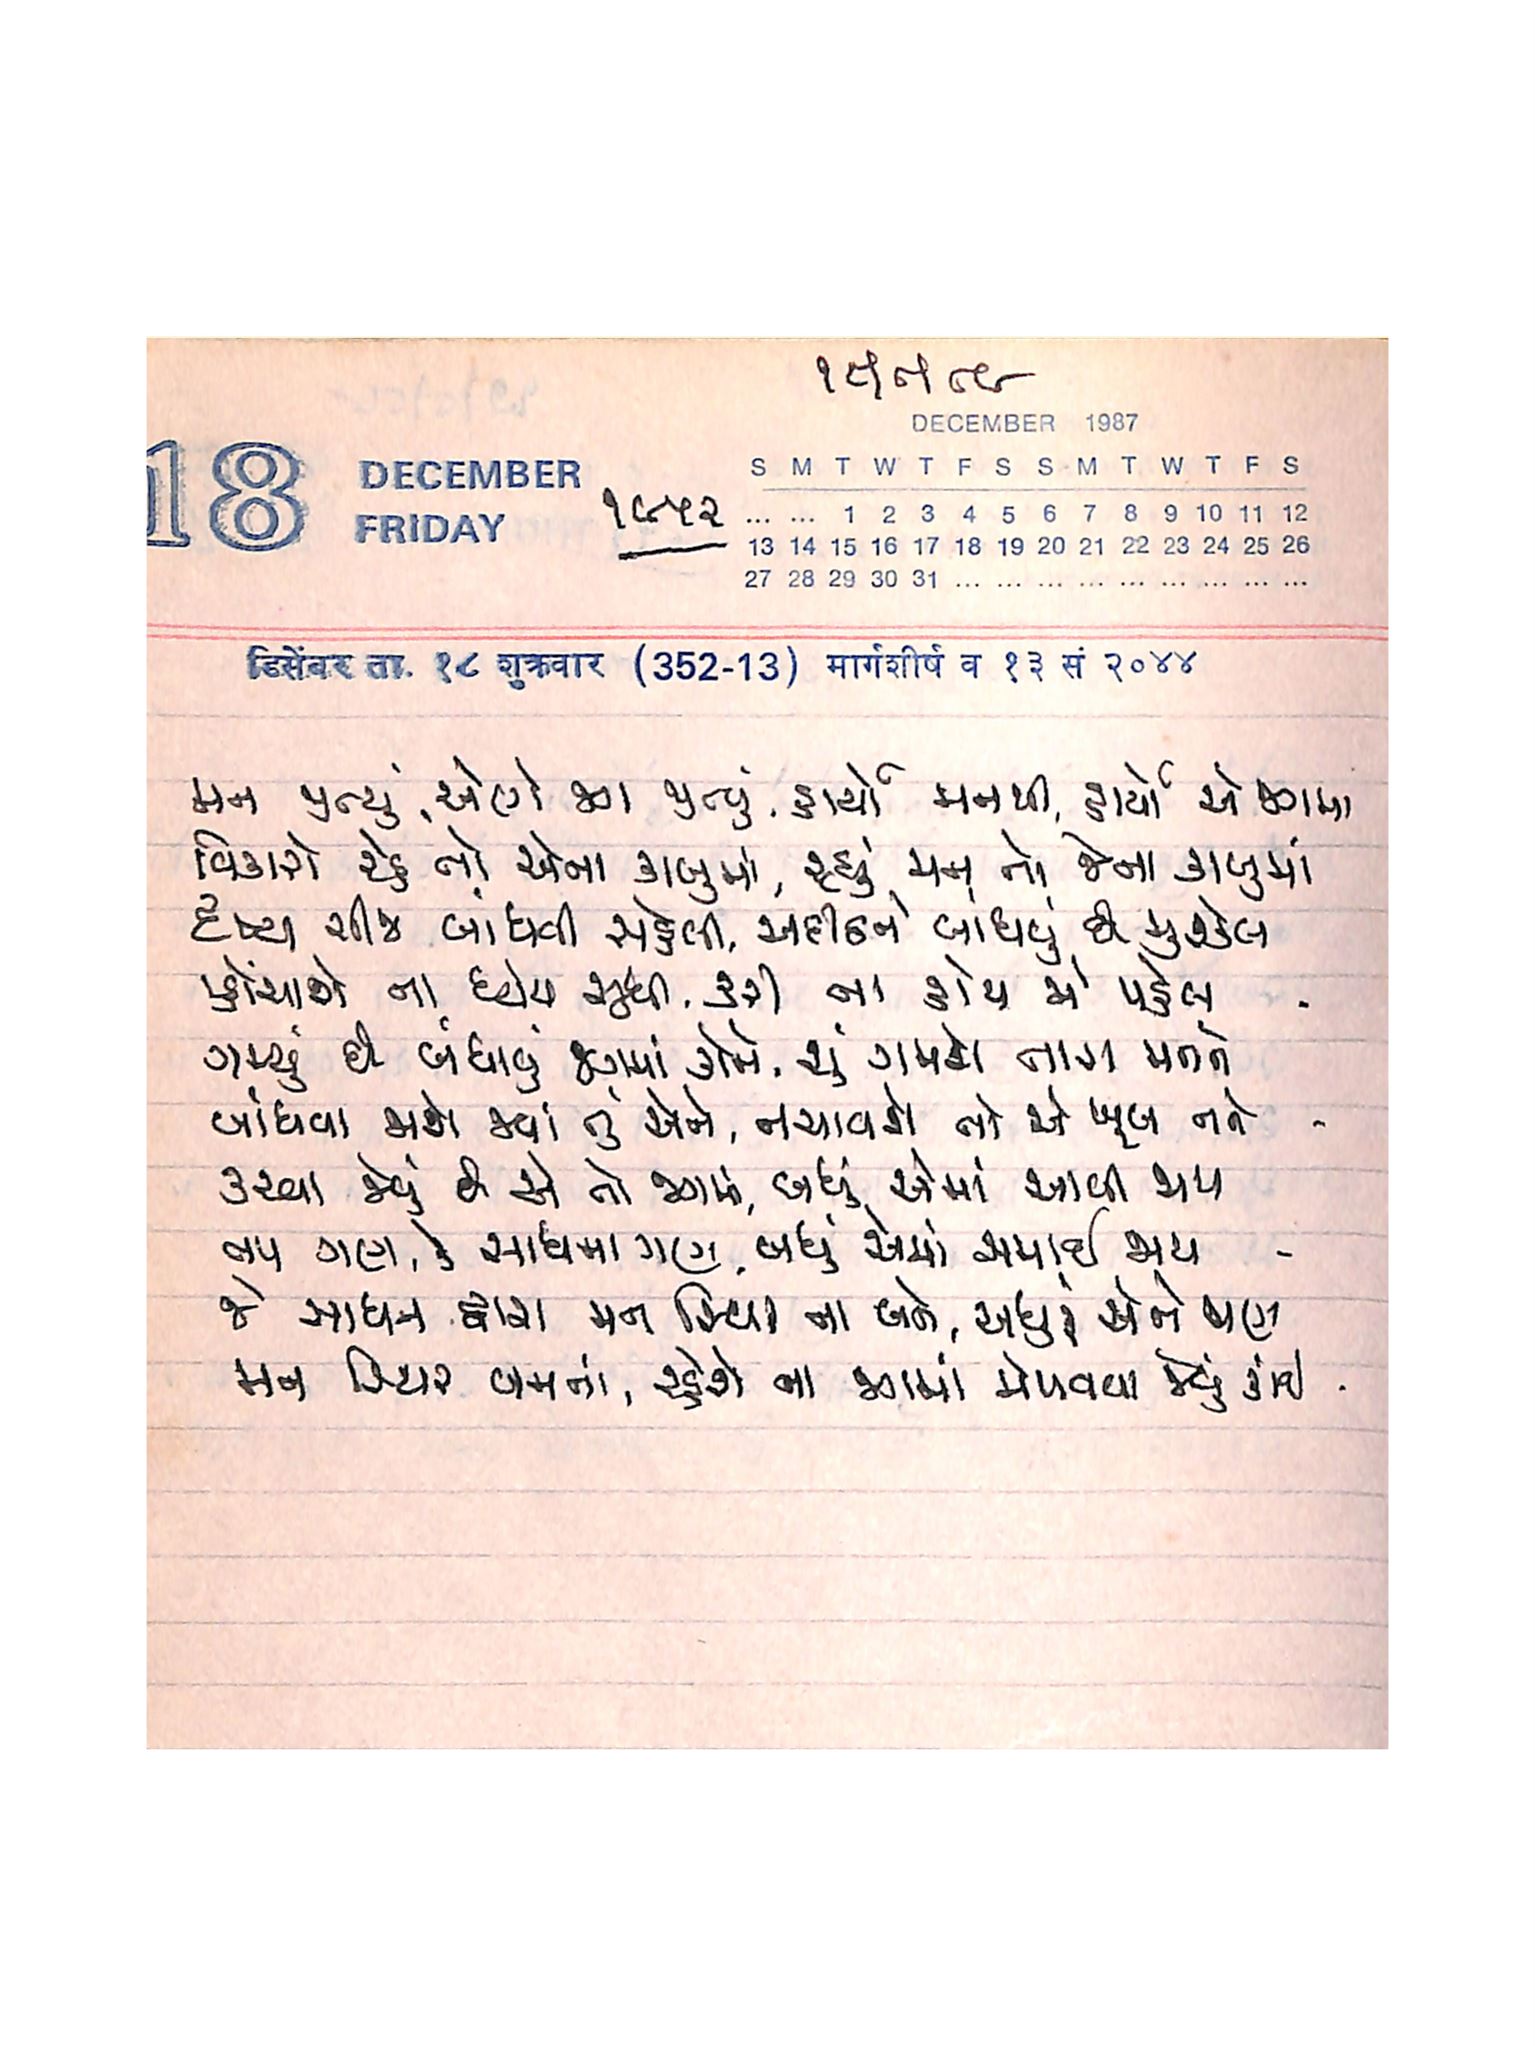 DECEMBER 1987
18 DECEMBER
FRIDAY
૧૯૫૨
S M T W T F S S M T W T F S
... ... 1 2 3 4 5 6 7 8 9 10 11 12
13 14 15 16 17 18 19 20 21 22 23 24 25 26
27 28 29 30 31 ... ... ... ... ... ... ... ... ...
डिसेंबर ता. १८ शुक्रवार (352-13) मार्गशीर्ष व १३ सं २०४४
મન જીત્યું, એણે જગ જીત્યું. હાર્યો મનથી, હાર્યો એ જગમાં
વિકારો રહે તો એના કાબુમાં, રહ્યું મન તો જેના કાબુમાં
દૃશ્ય ચીજ બાંધવી સહેલી, અદીઠને બાંધવું છે મુશ્કેલ
પહોંચાશે ના ધ્યેય સુધી. કરી ના હોય જો પહેલ .
ગમ્યું છે બંધાવું જગમાં કોને. શું ગમશે તારા મનને
બાંધવા જાશે જ્યાં તું એને, નચાવશે તો એ ખૂબ તને -
કરવા જેવું છે એ તો જગમાં, બધું એમાં આવી જાય
તપ ગણ, કે સાધના ગણ, બધું એમાં સમાઈ જાય -
જે સાધન દ્વારા મન સ્થિર ના બને, અધુરું એને જાણ
મન સ્થિર બનતાં, રહેશે ના જગમાં મેળવવા જેવું કાંઈ .